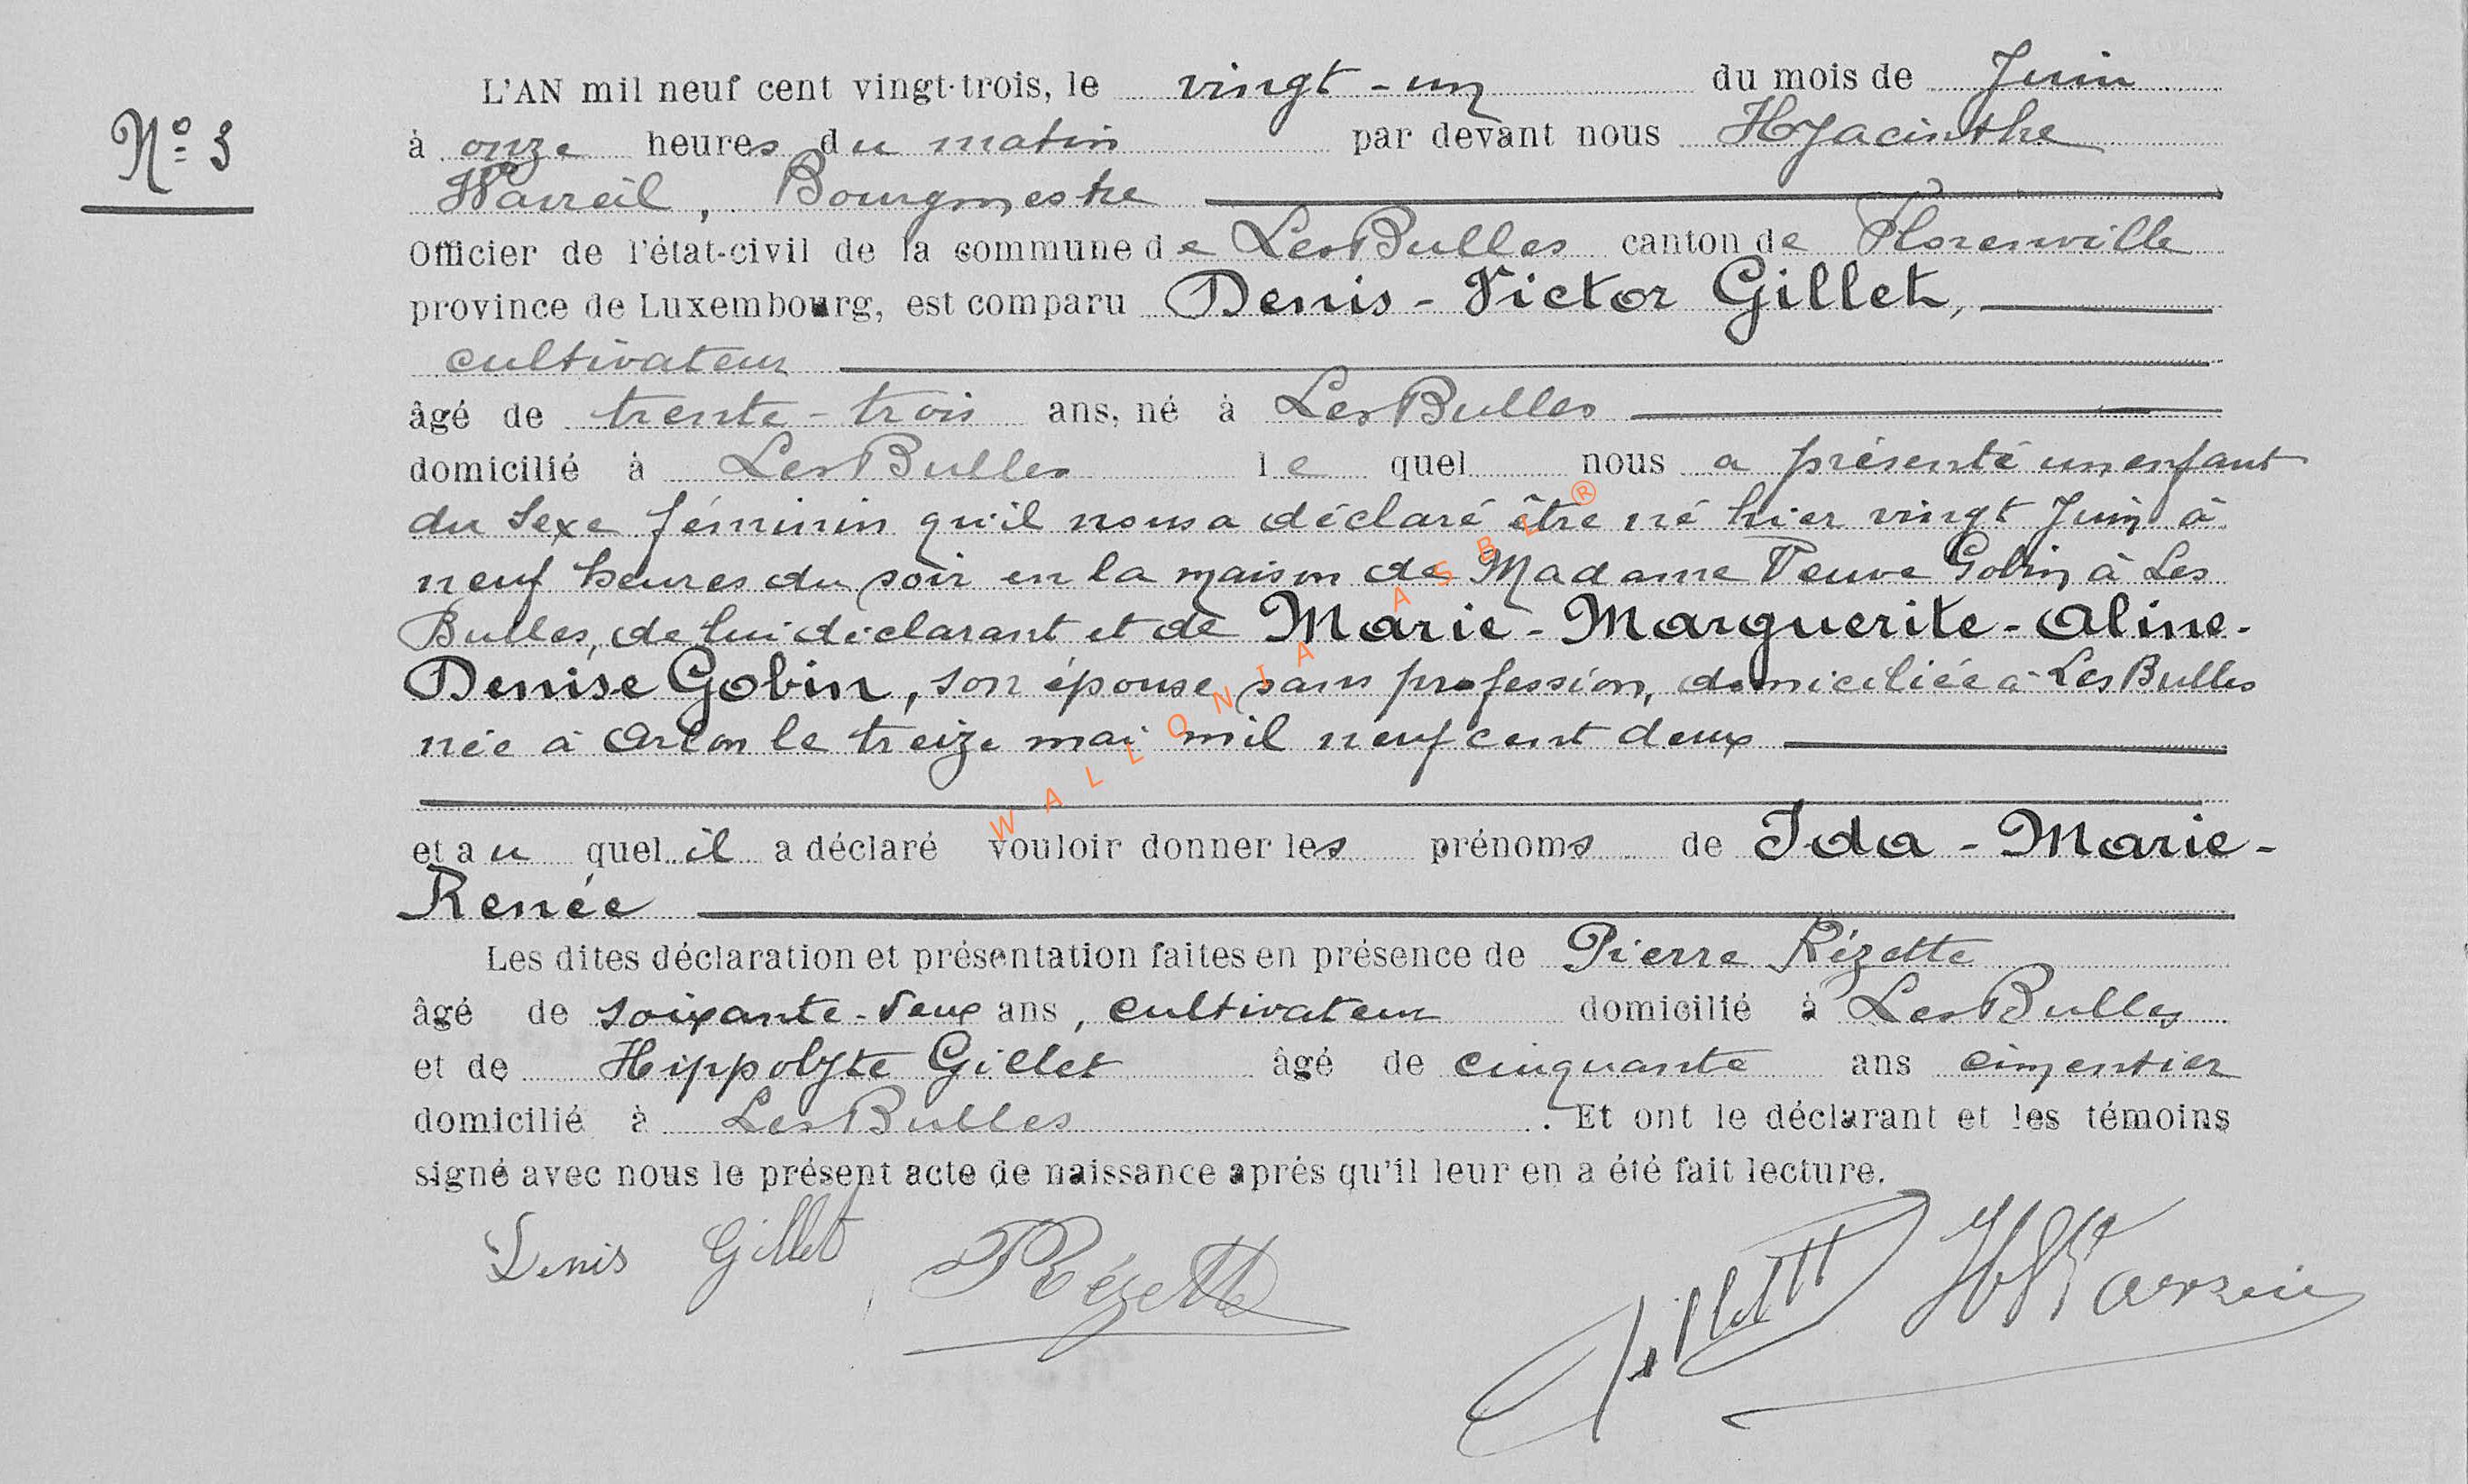 L'AN mil neuf cent vingt-trois, le vingt-un du mois de Juin
N° 3
à onze heures du matin par devant nous Hyacinthe
Bourgmestre
Officier de l'état-civil de la commune de Les Bulles canton de Florenville
province de Luxembourg, est comparu Denis-Victor Gillet,
cultivateur
âgé de trente-trois ans, né à Les Bulles
domicilié à Les Bulles le quel nous a présenté un enfant
du sexe féminin qu'il nous a déclaré être né hier vingt Juin à
neuf heures du soir en la maison de Madame Veuve Gobin à Les
Bulles, de lui déclarant et de Marie-Marguerite-Aline-
Denise Gobin, son épouse sans profession, domiciliée à Les Bulles
née à Arlon le treize mai mil neuf cent deux
et au quel il a déclaré vouloir donner les prénoms de Ida-Marie-
Renée
Les dites déclaration et présentation faites en présence de Pierre Rézette
âgé de soixante-deux ans, cultivateur domicilié à Les Bulles
et de Hippolyte Gillet âgé de cinquante ans cimentier
domicilié à Les Bulles. Et ont le déclarant et les témoins
signé avec nous le présent acte de naissance après qu'il leur en a été fait lecture.
Denis Gillet Rézette Gillet
WALLONIA ASBL ®